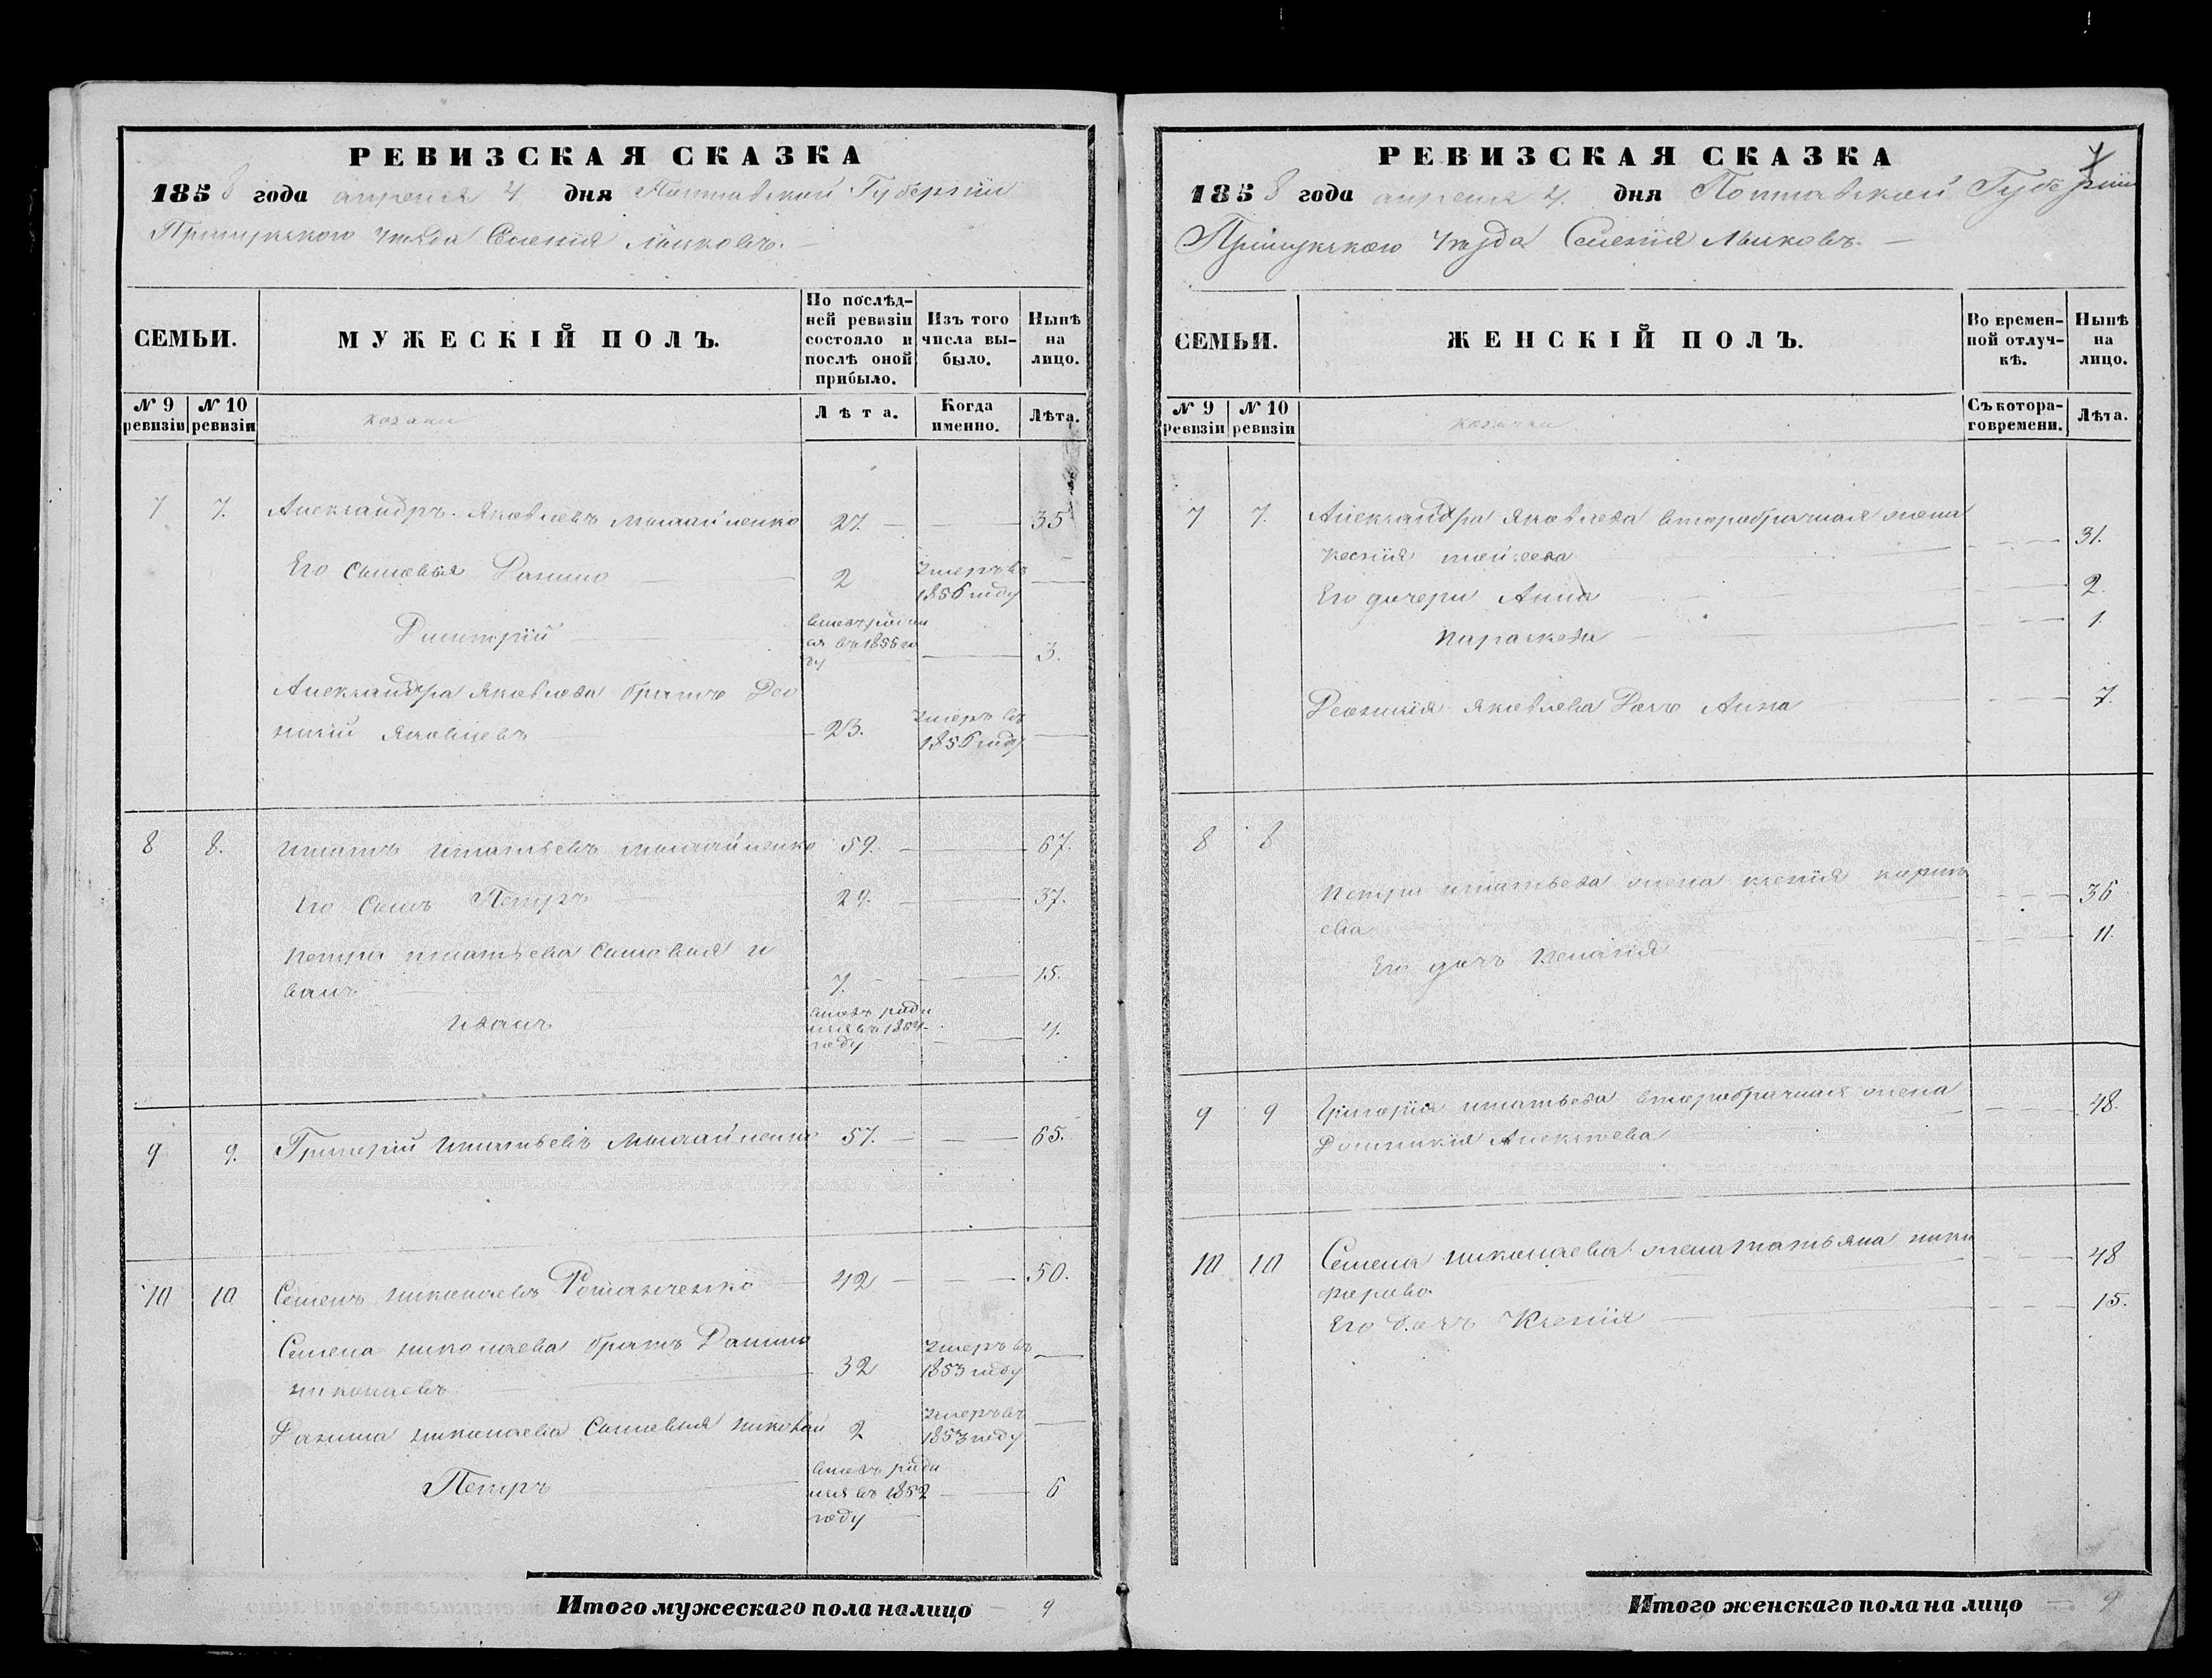 РЕВИЗСКАЯ СКАЗКА
1858 года апреля 4 дня Полтавской Губернии
Прилукского уезда Селения
СЕМЬИ.
МУЖЕСКІЙ ПОЛЪ.
По послѣд-
ней ревизіи
состояло и
послѣ оной
прибыло.
Изъ того
числа вы-
было.
Нынѣ
на
лицо.
№ 9
ревизіи
№ 10
ревизіи
козаки
Лѣта.
Когда
именно.
Лѣта.
7 7. Александръ Яковлевъ 27. 35
Его сыновья Данило 2 умеръ въ
1856 году
Дмитрій вновь роди
ся въ 1855 го
ду 3.
Александра Яковлева братъ Лео
нтій Яковлевъ 23. умеръ въ
1856 году
8 8. Игнатъ Игнатьевъ 59. 67.
Его сынъ Петръ 29. 37.
Петра Игнатьева сыновья И
ванъ 7. 15.
Иванъ вновь роди
лся въ 1854
году 4.
9 9. Григорій Игнатьевъ 57. 65.
10 10 Семенъ Николаевъ Романченко 42 50.
Семена Николаева братъ Данило
Николаевъ 32 умеръ въ
1853 году
Данила Николаева сыновья Николай 2 умеръ въ
1853 году
Петръ вновь роди
лся въ 1852
году 6
Итого мужескаго пола налицо 9
РЕВИЗСКАЯ СКАЗКА
1858 года апреля 4. дня Полтавской Губерніи
Прилукского уезда Селенія
СЕМЬИ.
ЖЕНСКІЙ ПОЛЪ.
Во времен-
ной отлуч-
кѣ.
Нынѣ
на
лицо.
№ 9
ревизіи
№ 10
ревизіи
козачки
Съ котора-
го времени.
Лѣта.
7 7. Александра Яковлева второбрачная жена
Ксенія 31.
Его дочери Анна 2.
Параскева 1.
Яковлева дочь Анна 7.
8 8 Петра Игнатьева жена Ксенія
ева 36
Его дочь 11.
9 9 Григорія Игнатьева второбрачная жена 48.
Алексеева
10 10 Семена Николаева жена Татьяна Ники
форова 48
Его дочь Ксенія 15.
Итого женскаго пола на лицо 9